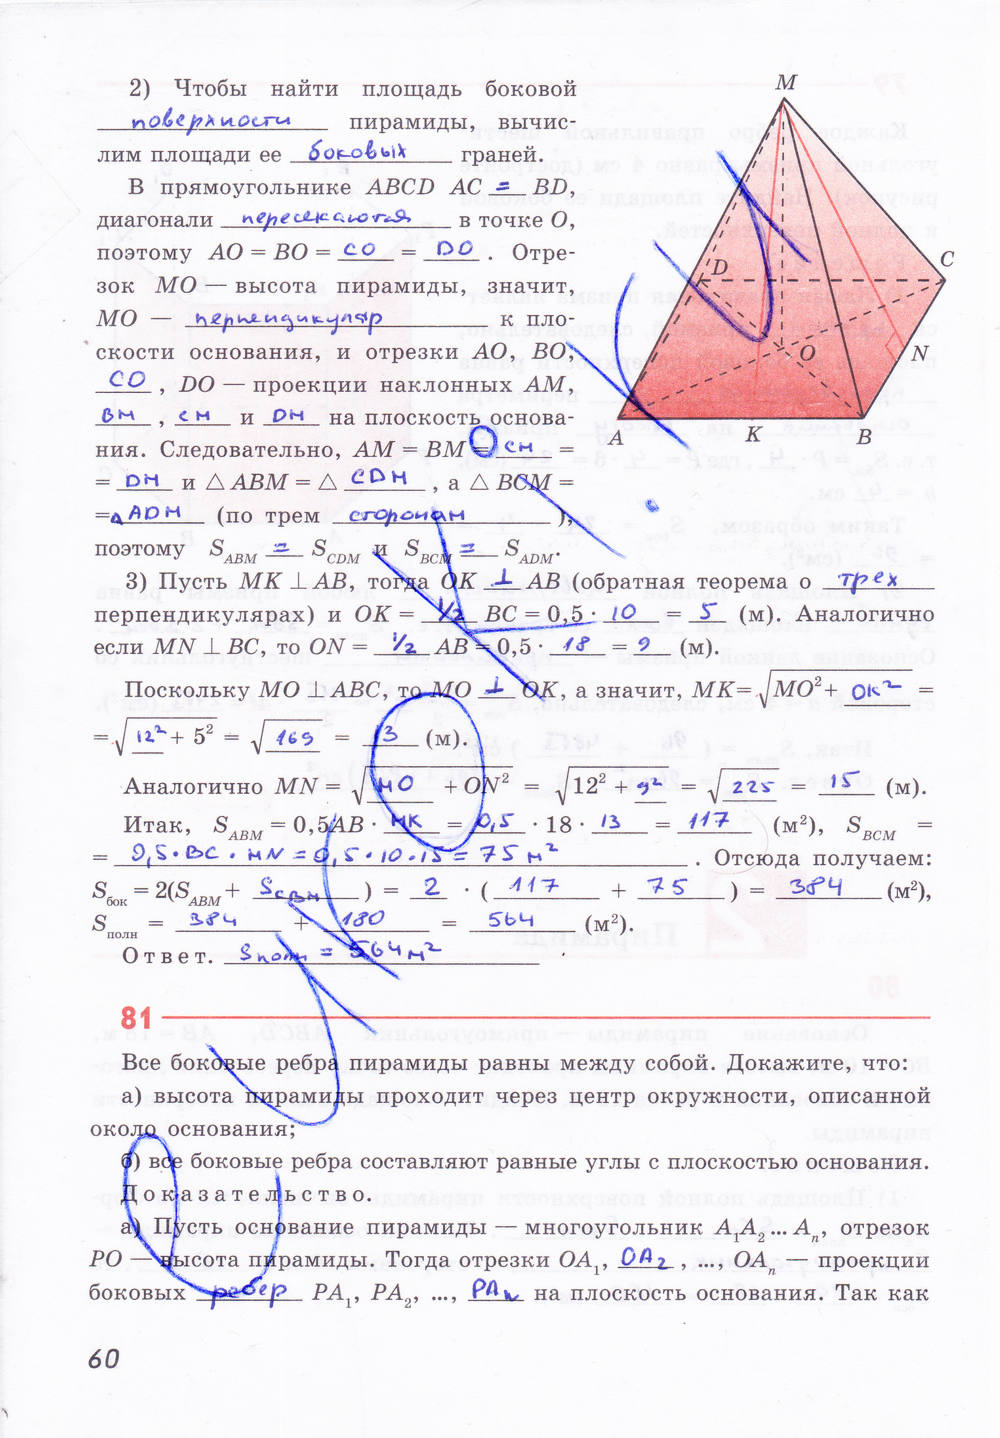 2) Чтобы найти площадь боковой
поверхности пирамиды, вычис-
лим площади ее боковых граней.
В прямоугольнике ABCD AC = BD,
диагонали пересекаются в точке O,
поэтому AO = BO = CO = DO. Отре-
зок MO — высота пирамиды, значит,
MO — перпендикуляр к пло-
скости основания, и отрезки AO, BO,
CO, DO — проекции наклонных AM,
BM, CM и DM на плоскость основа-
ния. Следовательно, AM = BM = CM =
= DM и △ ABM = △ CDM, а △ BCM =
= △ ADM (по трем сторонам),
поэтому S_ABM = S_CDM и S_BCM = S_ADM.
M
D
C
O
N
A
K
B
3) Пусть MK ⊥ AB, тогда OK ⊥ AB (обратная теорема о трех
перпендикулярах) и OK = 1/2 BC = 0,5 · 10 = 5 (м). Аналогично
если MN ⊥ BC, то ON = 1/2 AB = 0,5 · 18 = 9 (м).
Поскольку MO ⊥ ABC, то MO ⊥ OK, а значит, MK = √(MO² + OK²) =
= √(12² + 5²) = √169 = 13 (м).
Аналогично MN = √(MO + ON²) = √(12² + 9²) = √225 = 15 (м).
Итак, S_ABM = 0,5AB · MK = 0,5 · 18 · 13 = 117 (м²), S_BCM =
= 0,5 · BC · MN = 0,5 · 10 · 15 = 75 м². Отсюда получаем:
S_бок = 2(S_ABM + S_CBM) = 2 · (117 + 75) = 384 (м²),
S_полн = 384 + 180 = 564 (м²).
Ответ. Sполн = 564 м²
81
Все боковые ребра пирамиды равны между собой. Докажите, что:
а) высота пирамиды проходит через центр окружности, описанной
около основания;
б) все боковые ребра составляют равные углы с плоскостью основания.
Доказательство.
а) Пусть основание пирамиды — многоугольник A₁A₂ ... Aₙ, отрезок
PO — высота пирамиды. Тогда отрезки OA₁, OA₂, ..., OAₙ — проекции
боковых ребер PA₁, PA₂, ..., PAₙ на плоскость основания. Так как
60